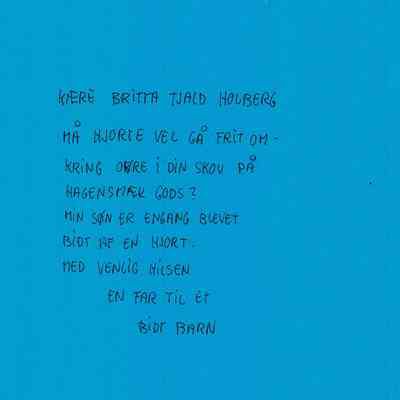 KÆRE BRITTA TJALD HOLBERG
MÅ HJORTE VEL GÅ FRIT OM-
KRING OVRE I DIN SKOV PÅ
HAGENSMÆK GODS?
MIN SØN ER ENGANG BLEVET
BIDT AF EN HJORT.
MED VENLIG HILSEN
EN FAR TIL ET
BIDT BARN